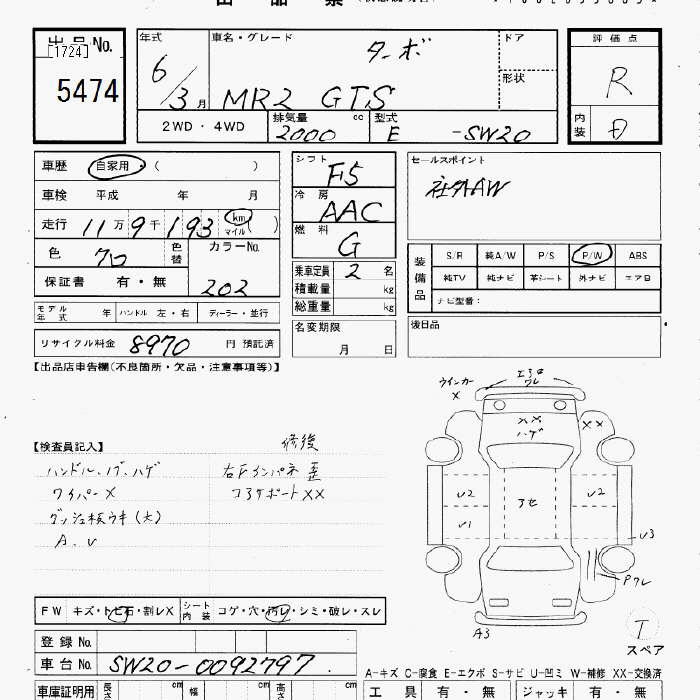 出品No.
1724
5474
年式
6/3月
車名・グレード
ターボ
MR2 GTS
ドア
形状
評価点
R
内装
D
2WD・4WD
排気量 cc
2000
型式
E -SW20
車歴 自家用 ( )
車検 平成 年 月
走行 11万9千193 km マイル ( )
色 クロ 色替 カラーNo.
202
保証書 有・無
モデル年式 年 ハンドル 左・右 ディーラー・並行
リサイクル料金 8970 円 預託済
シフト F5
冷房 AAC
燃料 G
乗車定員 2 名
積載量 kg
総重量 kg
名変期限
月 日
セールスポイント
社外AW
装備品
S/R 純A/W P/S P/W ABS
純TV 純ナビ 革シート 外ナビ エアB
ナビ型番:
後日品
【出品店申告欄(不良箇所・欠品・注意事項等)】
【検査員記入】
修復
ハンドル、ノブ、ハゲ
ワイパーX
ダッシュ板ウキ(大)
A、U
右Fインパネ歪
コアサポートXX
ウインカーX
XX
ハゲ
XX
アセ
U2
U2
U1
U3
Pワレ
A3
T
スペア
FW キズ・トビ石・割レX シート内装 コゲ・穴・汚レ・シミ・破レ・スレ
登録 No.
車台 No. SW20-0092797
A-キズ C-腐食 E-エクボ S-サビ U-凹ミ W-補修 XX-交換済
車庫証明用 長さ cm 幅 cm 高さ cm
工具 有・無 ジャッキ 有・無